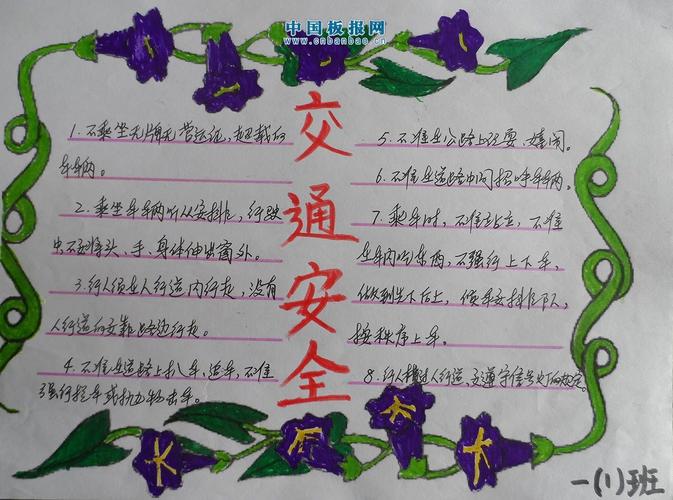 中国板报网
www.cnbanbao.cn
交通安全
1. 不乘坐无牌无营运证,超载的
车辆。
2. 乘坐车辆听从安排,行驶
中不把头、手、身体伸出窗外。
3. 行人须在人行道内行走,没有
人行道的交靠路边行走。
4. 不准在道路上扒车、追车,不准
强行拦车或抛物击车。
5. 不准在公路上玩耍、嬉闹。
6. 不准在道路中间招呼车辆。
7. 乘车时,不准站立,不准
在车内吃东西,不强行上下车,
做到先下后上,候车安排队,
按秩序上车。
8. 行人横过人行道,交遵守信号灯的规定。
一(1)班